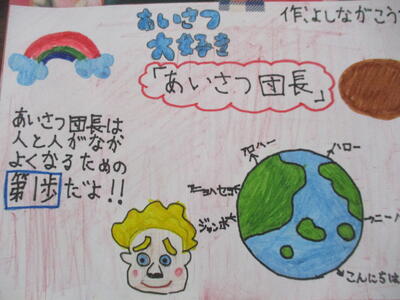 あいさつ
大好き
作、よしながこう
「あいさつ団長」
あいさつ団長は
人と人がなが
よくなるための
第1歩だよ!!
アロハー
ハロー
ニョハセヨ
ジャンボ
ニーハ
こんにちは